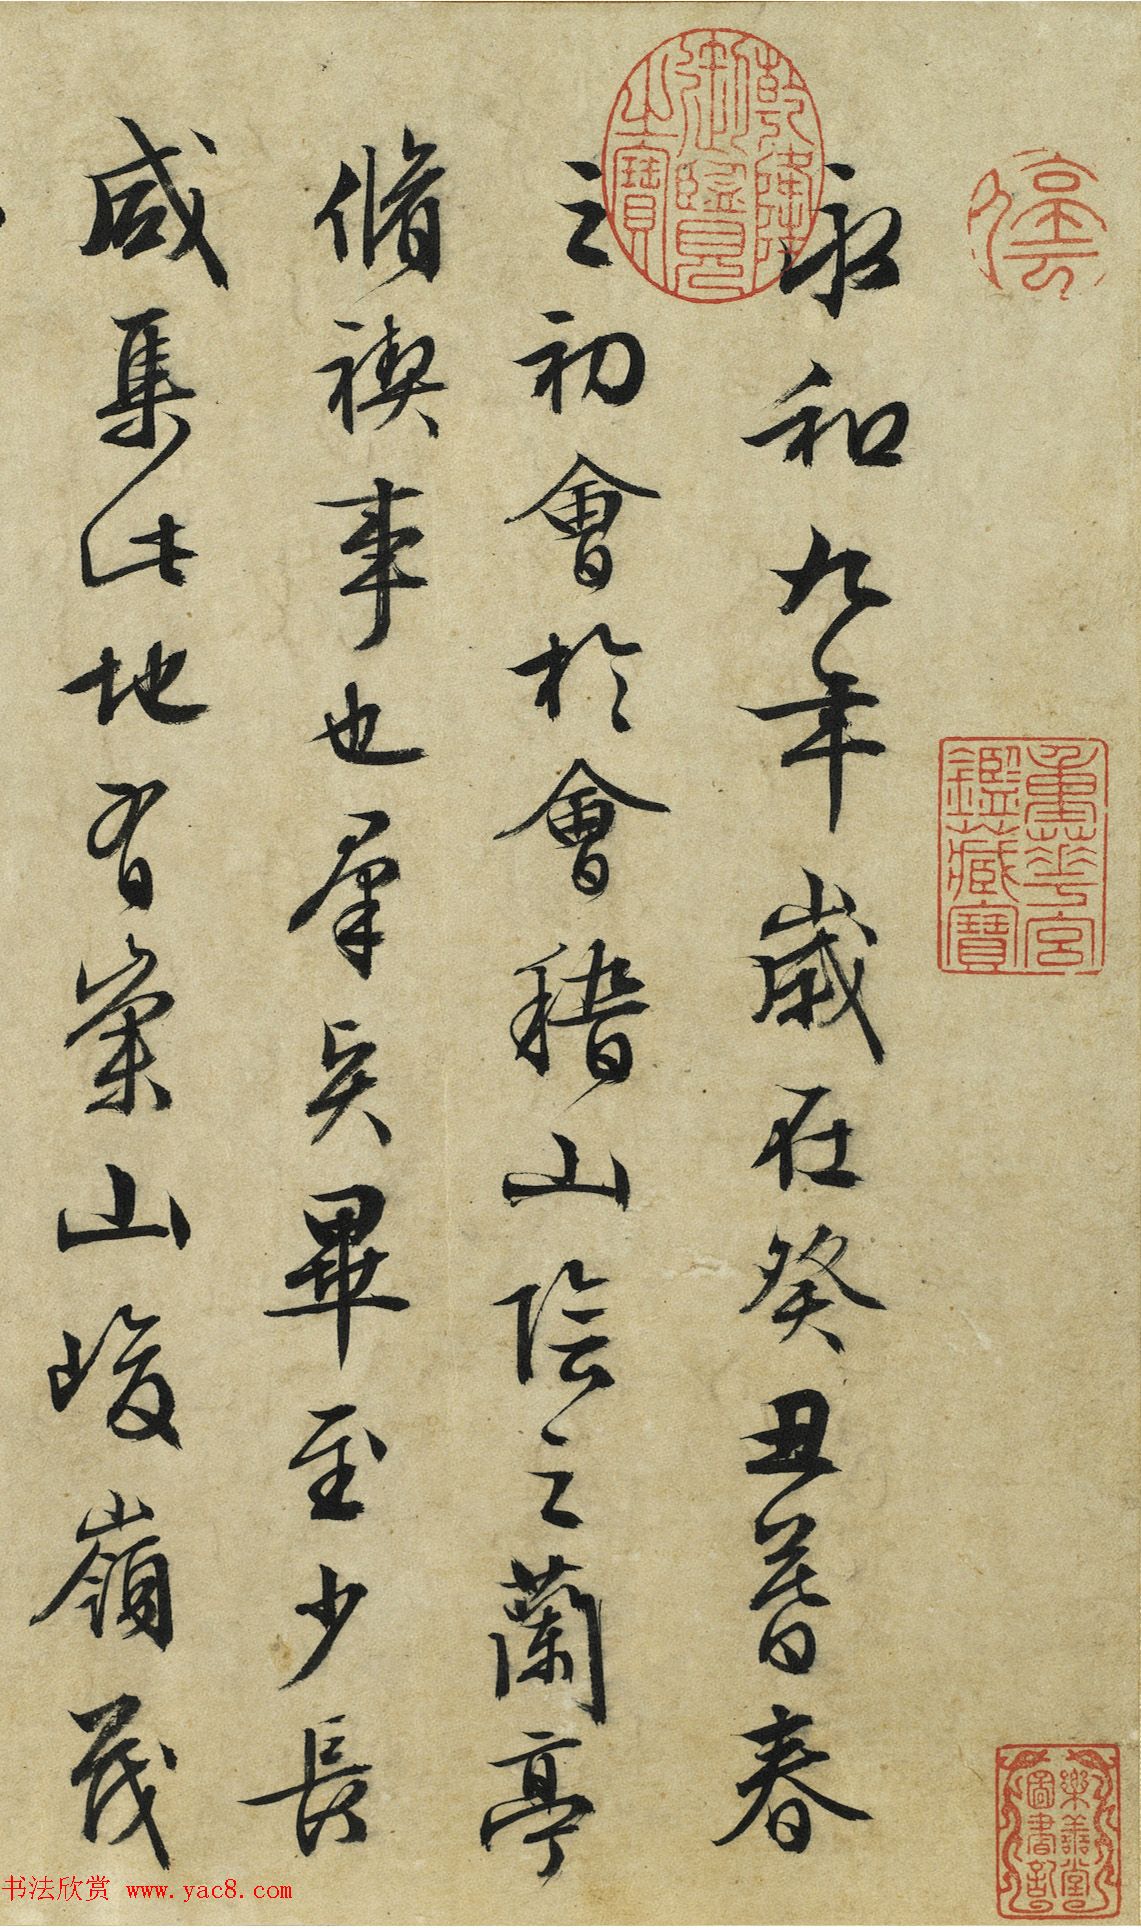 永和九年歲在癸丑暮春
之初會於會稽山陰之蘭亭
脩禊事也羣賢畢至少長
咸集此地有崇山峻嶺茂
乾隆御覽之寶
重華宮鑑藏寶
樂善堂圖書記
书法欣赏 www.yac8.com